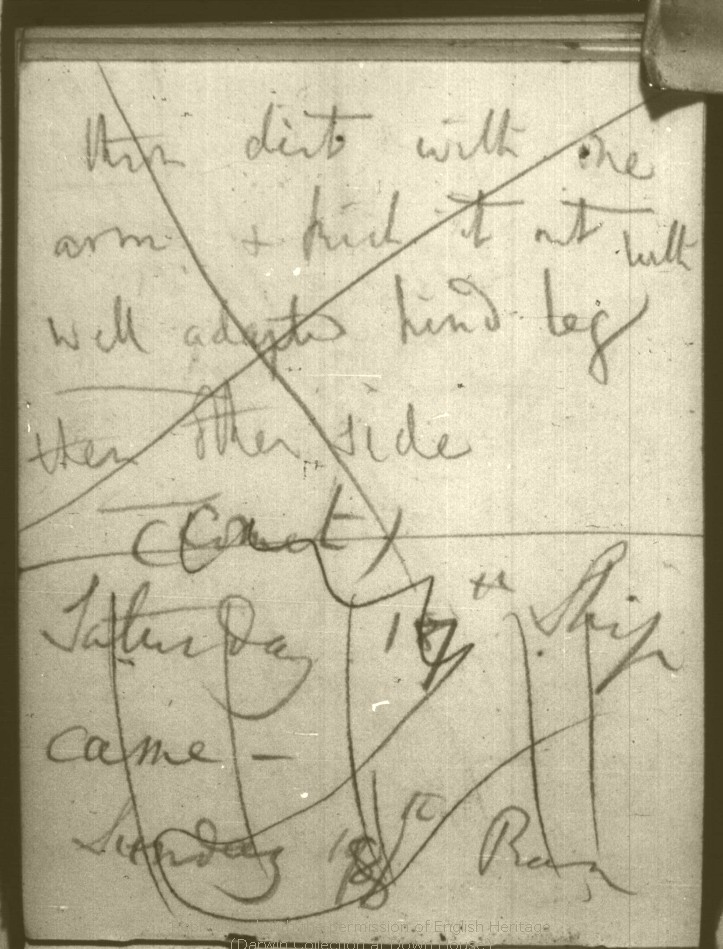 throw dirt with one
arm & kick it out with
well adapted hind leg
then other side
(Comet)
Saturday 17th Ship
came —
Sunday 18th Ran
permission of English Heritage
(Darwin Collection at Down House)